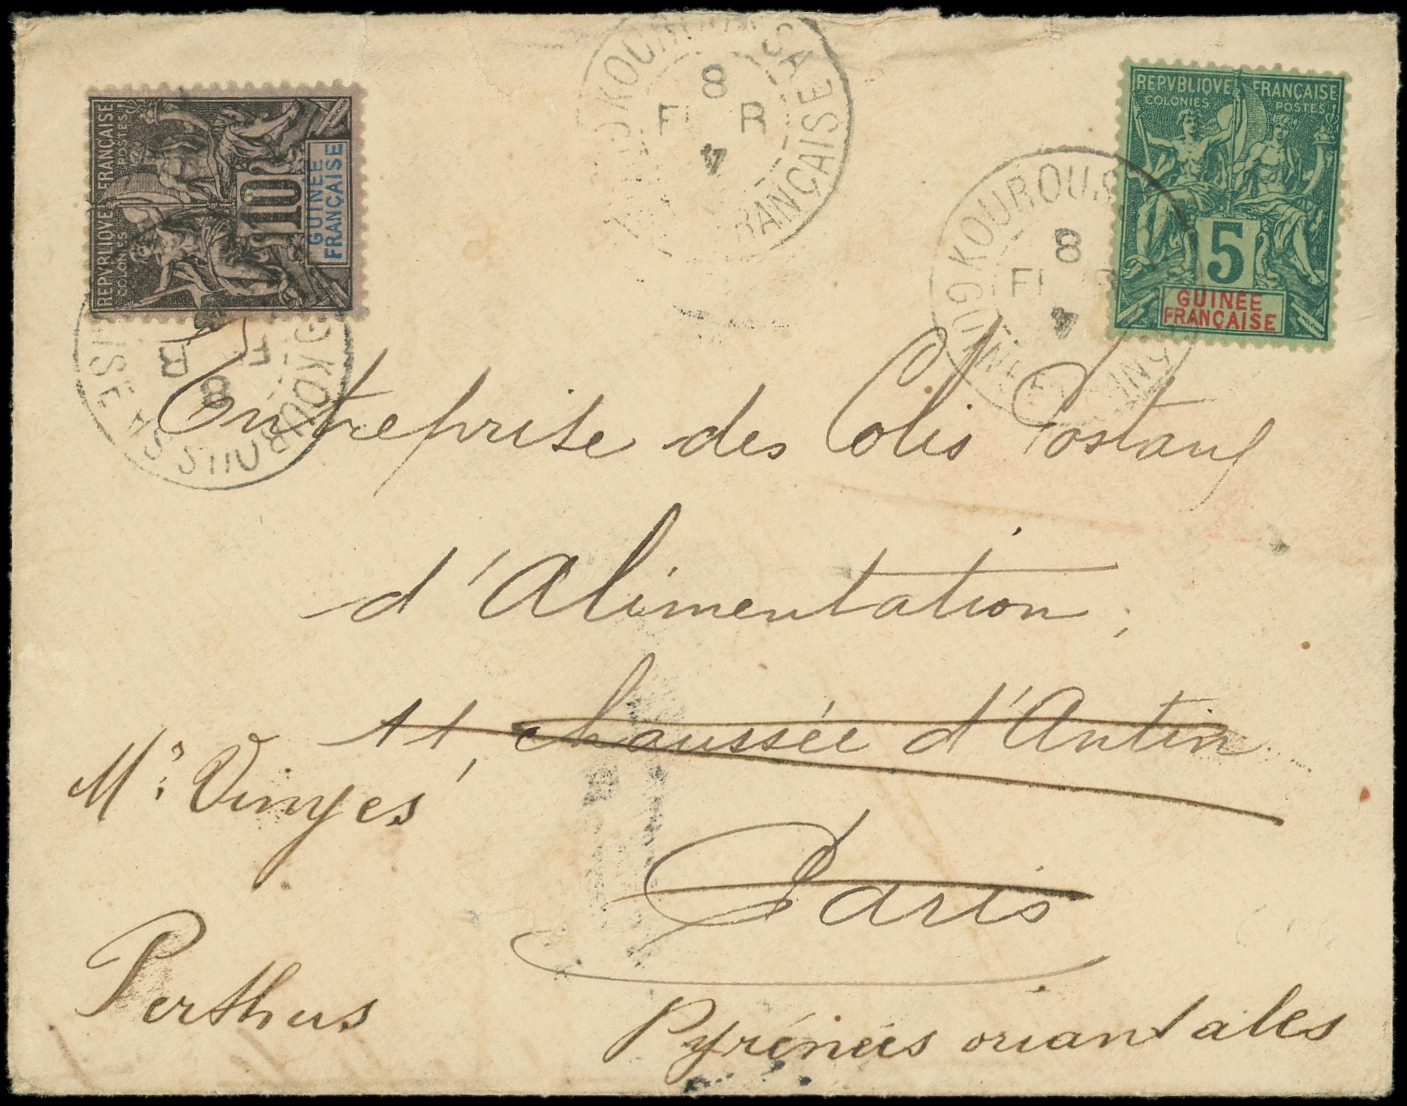 REPVBLIQUE FRANÇAISE
COLONIES POSTES
10
GUINÉE
FRANÇAISE
KOUROUSSA
8
FRANÇAISE
REPVBLIQUE FRANÇAISE
COLONIES POSTES
5
GUINÉE
FRANÇAISE
KOUROUSSA
8
KOUROUSSA
8
Entreprise des Colis Postaux
d'Alimentation,
11, chaussée d'Antin
Paris
Mr Vinyes
Perthus
Pyrénées oriantales